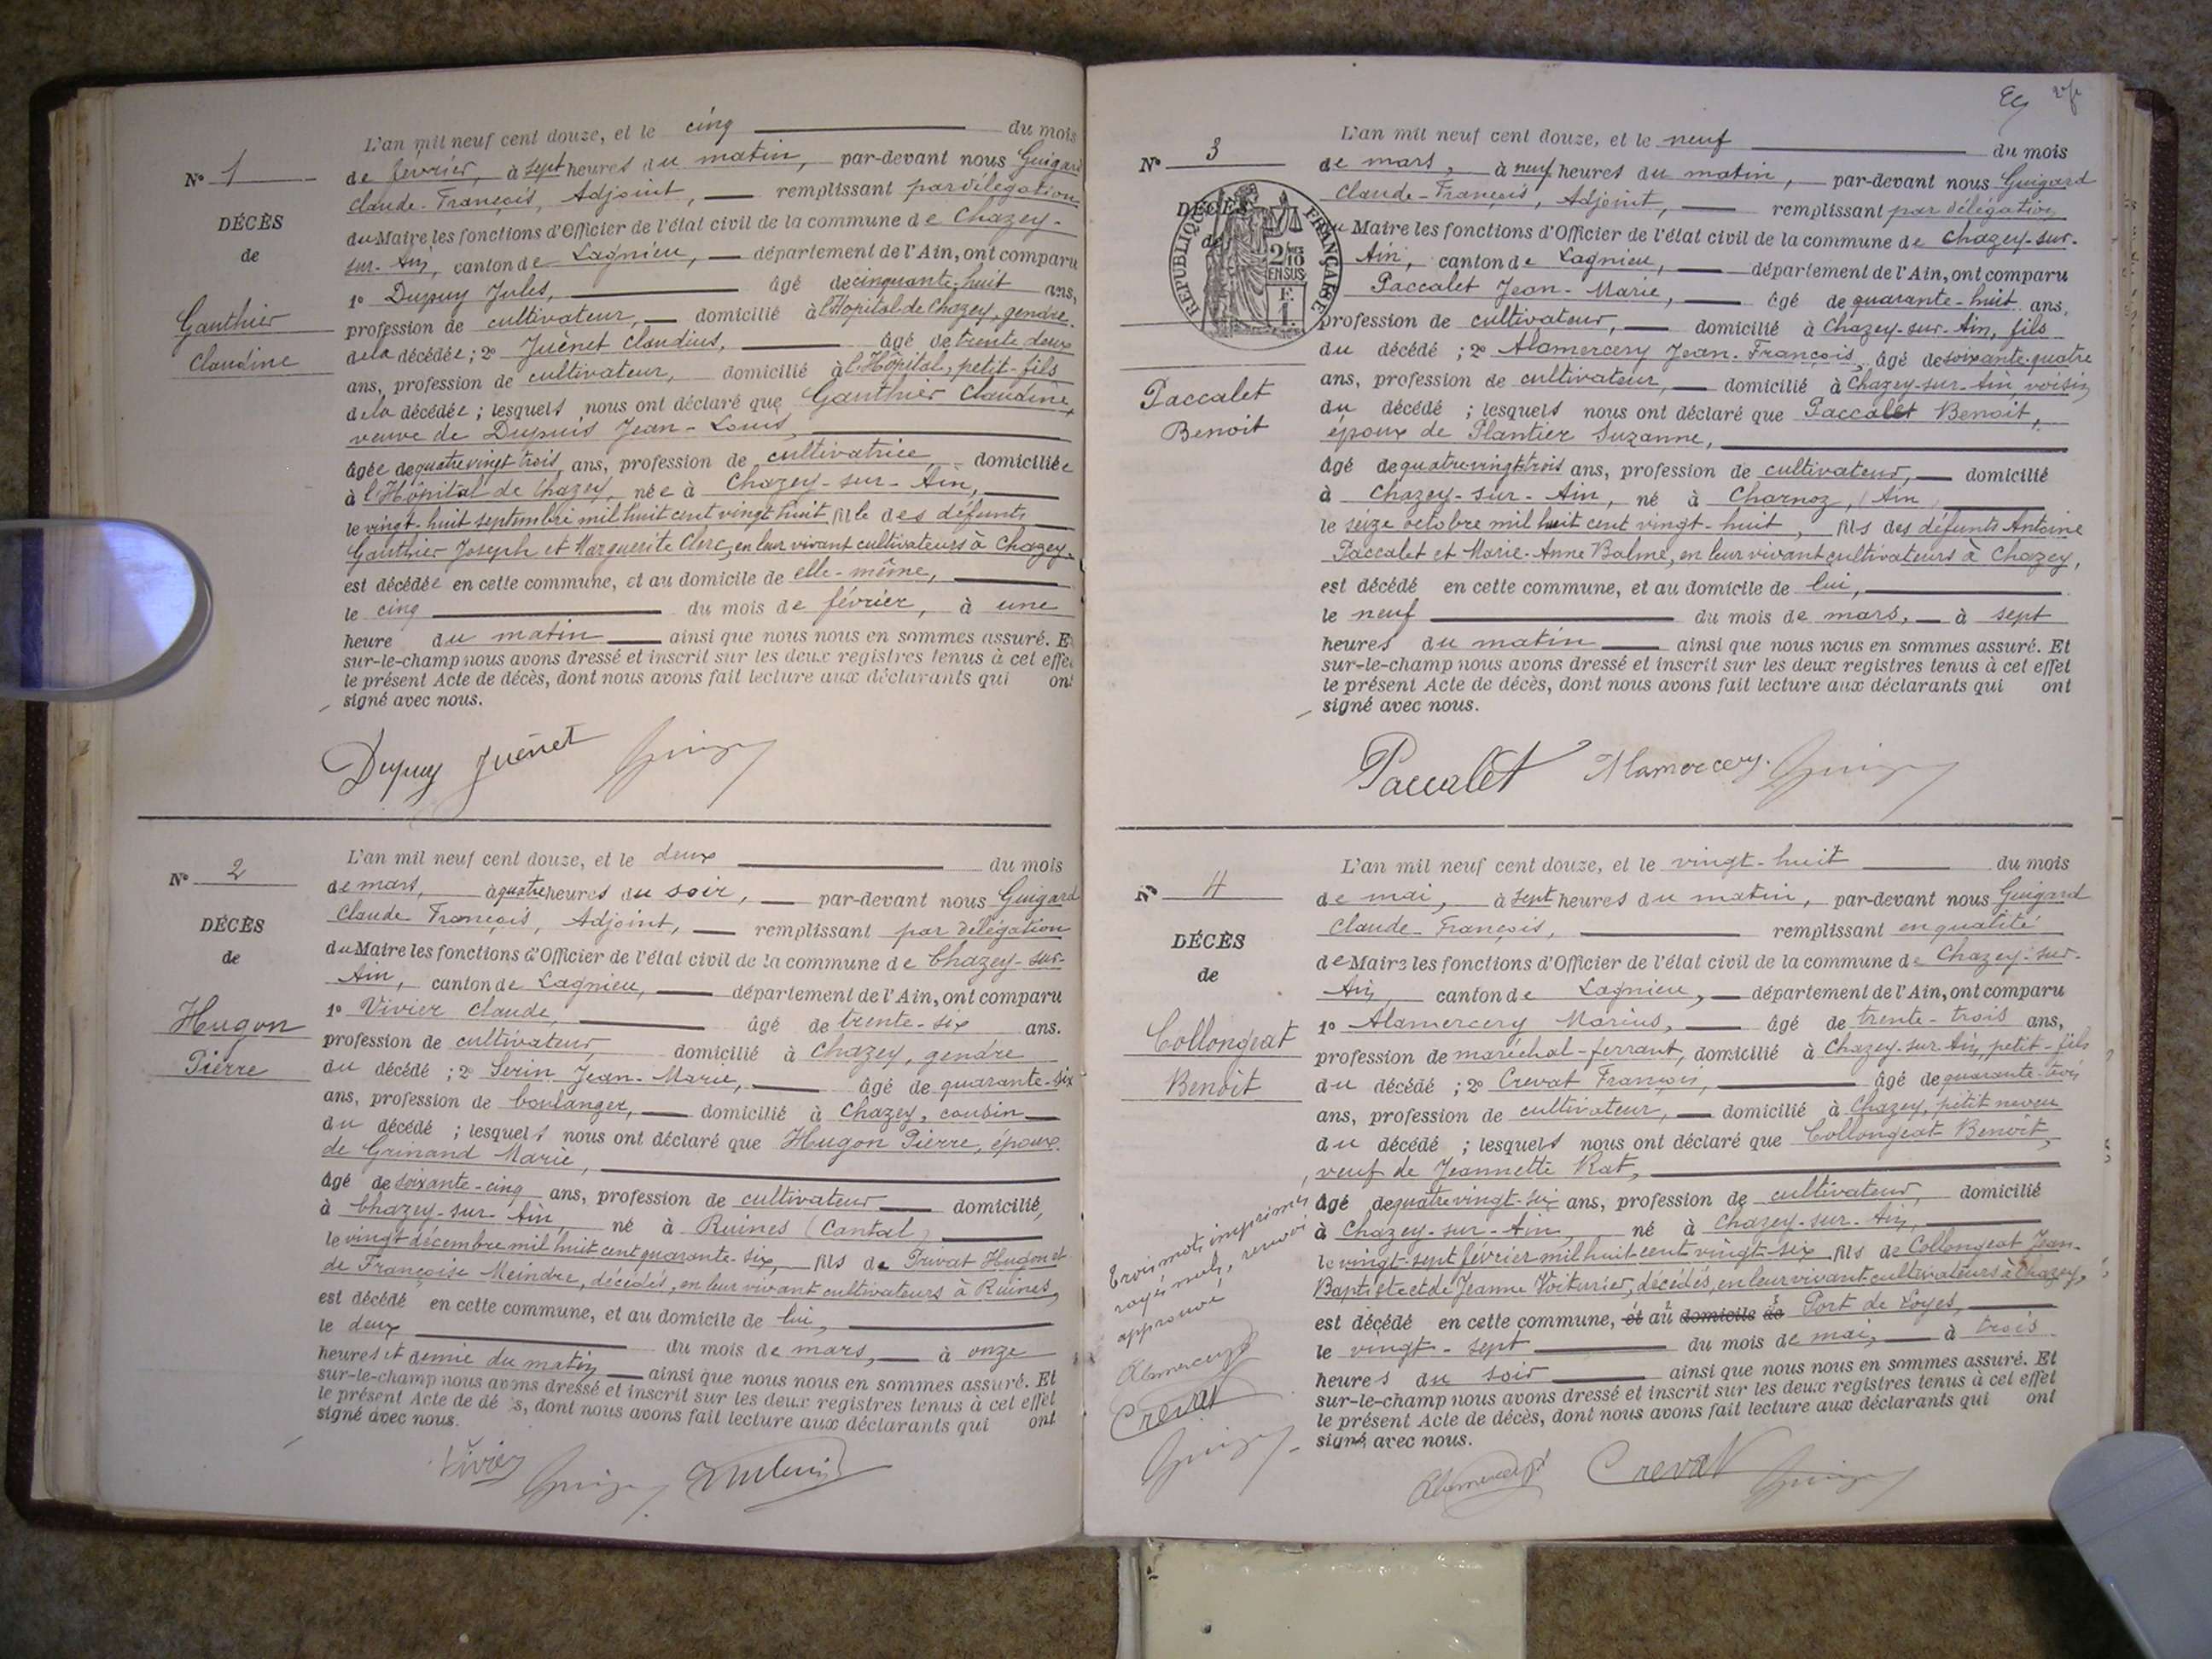 N° 1
DÉCÈS
de
Gauthier
Claudine
L'an mil neuf cent douze, et le cinq du mois
de février, à sept heures du matin, par-devant nous Guigard
Claude-François, Adjoint, remplissant par délégation
du Maire les fonctions d'Officier de l'état civil de la commune de Chazey-
sur-Ain, canton de Lagnieu, département de l'Ain, ont comparu
1° Dupuy Jules, âgé de cinquante-huit ans,
profession de cultivateur, domicilié à l'Hôpital de Chazey, gendre
de la décédée; 2° Juénet Claudius, âgé de trente deux
ans, profession de cultivateur, domicilié à l'Hôpital, petit-fils
de la décédée; lesquels nous ont déclaré que Gauthier Claudine,
veuve de Dupuis Jean-Louis,
âgée de quatre vingt trois ans, profession de cultivatrice domiciliée
à l'Hôpital de Chazey, née à Chazey-sur-Ain,
le vingt-huit septembre mil huit cent vingt huit, fille des défunts
Gauthier Joseph et Marguerite Clerc, en leur vivant cultivateurs à Chazey,
est décédée en cette commune, et au domicile de elle-même,
le cinq du mois de février, à une
heure du matin ainsi que nous nous en sommes assuré. E
sur-le-champ nous avons dressé et inscrit sur les deux registres tenus à cet effe
le présent Acte de décès, dont nous avons fait lecture aux déclarants qui ont
signé avec nous.
Dupuy Juénet
N° 2
DÉCÈS
de
Hugon
Pierre
L'an mil neuf cent douze, et le deux du mois
de mars, à quatre heures du soir, par-devant nous Guigard
Claude François, Adjoint, remplissant par délégation
du Maire les fonctions d'Officier de l'état civil de la commune de Chazey-sur-
Ain, canton de Lagnieu, département de l'Ain, ont comparu
1° Vivier Claude, âgé de trente-six ans.
profession de cultivateur, domicilié à Chazey, gendre
du décédé; 2° Serin Jean-Marie, âgé de quarante-six
ans, profession de boulanger, domicilié à Chazey, cousin
du décédé; lesquels nous ont déclaré que Hugon Pierre, époux
de Grinand Marie,
âgé de soixante-cinq ans, profession de cultivateur domicilié,
à Chazey-sur-Ain, né à Ruines (Cantal)
le vingt décembre mil huit cent quarante-six, fils de Privat Hugon et
de Françoise Meindre, décédés, en leur vivant cultivateurs à Ruines,
est décédé en cette commune, et au domicile de lui,
le deux du mois de mars, à onze
heures et demie du matin ainsi que nous nous en sommes assuré. Et
sur-le-champ nous avons dressé et inscrit sur les deux registres tenus à cet effet
le présent Acte de dé s, dont nous avons fait lecture aux déclarants qui ont
signé avec nous.
Vivier
N° 3
DÉCÈS
de
RÉPUBLIQUE FRANÇAISE
2/10
EN SUS
F.
1
Paccalet
Benoit
L'an mil neuf cent douze, et le neuf du mois
de mars, à neuf heures du matin, par-devant nous Guigard
Claude-François, Adjoint, remplissant par délégation
du Maire les fonctions d'Officier de l'état civil de la commune de Chazey-sur-
Ain, canton de Lagnieu, département de l'Ain, ont comparu
Paccalet Jean-Marie, âgé de quarante-huit ans,
profession de cultivateur, domicilié à Chazey-sur-Ain, fils
du décédé; 2° Alamercery Jean-François, âgé de soixante-quatre
ans, profession de cultivateur, domicilié à Chazey-sur-Ain, voisin
du décédé; lesquels nous ont déclaré que Paccalet Benoit,
époux de Plantier Suzanne,
âgé de quatre vingt trois ans, profession de cultivateur, domicilié
à Chazey-sur-Ain, né à Charnoz, (Ain)
le seize octobre mil huit cent vingt-huit, fils des défunts Antoine
Paccalet et Marie-Anne Balme, en leur vivant cultivateurs à Chazey,
est décédé en cette commune, et au domicile de lui,
le neuf du mois de mars, à sept
heures du matin ainsi que nous nous en sommes assuré. Et
sur-le-champ nous avons dressé et inscrit sur les deux registres tenus à cet effet
le présent Acte de décès, dont nous avons fait lecture aux déclarants qui ont
signé avec nous.
Paccalet Alamercery
N° 4
DÉCÈS
de
Collongeat
Benoit
L'an mil neuf cent douze, et le vingt-huit du mois
de mai, à sept heures du matin, par-devant nous Guigard
Claude-François, remplissant en qualité
de Maire les fonctions d'Officier de l'état civil de la commune de Chazey-sur-
Ain, canton de Lagnieu, département de l'Ain, ont comparu
1° Alamercery Marius, âgé de trente-trois ans,
profession de maréchal-ferrant, domicilié à Chazey-sur-Ain, petit-fils
du décédé; 2° Crevat François, âgé de quarante-trois
ans, profession de cultivateur, domicilié à Chazey, petit neveu
du décédé; lesquels nous ont déclaré que Collongeat Benoit,
veuf de Jeannette Rat,
âgé de quatre vingt-six ans, profession de cultivateur, domicilié
à Chazey-sur-Ain, né à Chazey-sur-Ain,
le vingt-sept février mil huit cent vingt-six, fils de Collongeat Jean-
Baptiste et de Jeanne Voiturier, décédés, en leur vivant cultivateurs à Chazey,
est décédé en cette commune, et au domicile de Port de Loyes,
le vingt-sept du mois de mai, à trois
heures du soir ainsi que nous nous en sommes assuré. Et
sur-le-champ nous avons dressé et inscrit sur les deux registres tenus à cet effet
le présent Acte de décès, dont nous avons fait lecture aux déclarants qui ont
signé avec nous.
Trois mots imprimés
rayés nuls, renvoi
approuvé
Alamercery
Crevat
Alamercery Crevat